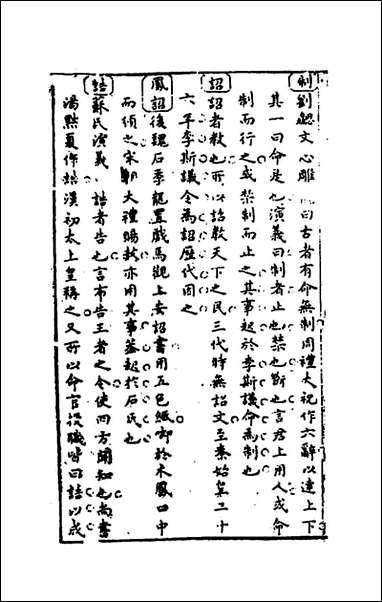 制劉勰文心雕龍曰古者有命無制周禮大祝作六辭以達上下
其一曰命是也演義曰制者止也禁也斷也言君上用人或命
制而行之或禁制而止之其事起於李斯議命為制也
詔詔者教也所以詔教天下之民三代時無詔文至秦始皇二十
六年李斯議令為詔歷代因之
鳳詔後魏石季龍置戲馬觀上安詔書用五色紙啣於木鳳口中
而頒之宋朝大禮賜赦亦用其事蓋起於石氏也
誥蘇氏演義 誥者告也言布告王者之令使四方聞知也尚書
湯黜夏作誥漢初太上皇稱之又所以命官授職皆曰誥以成